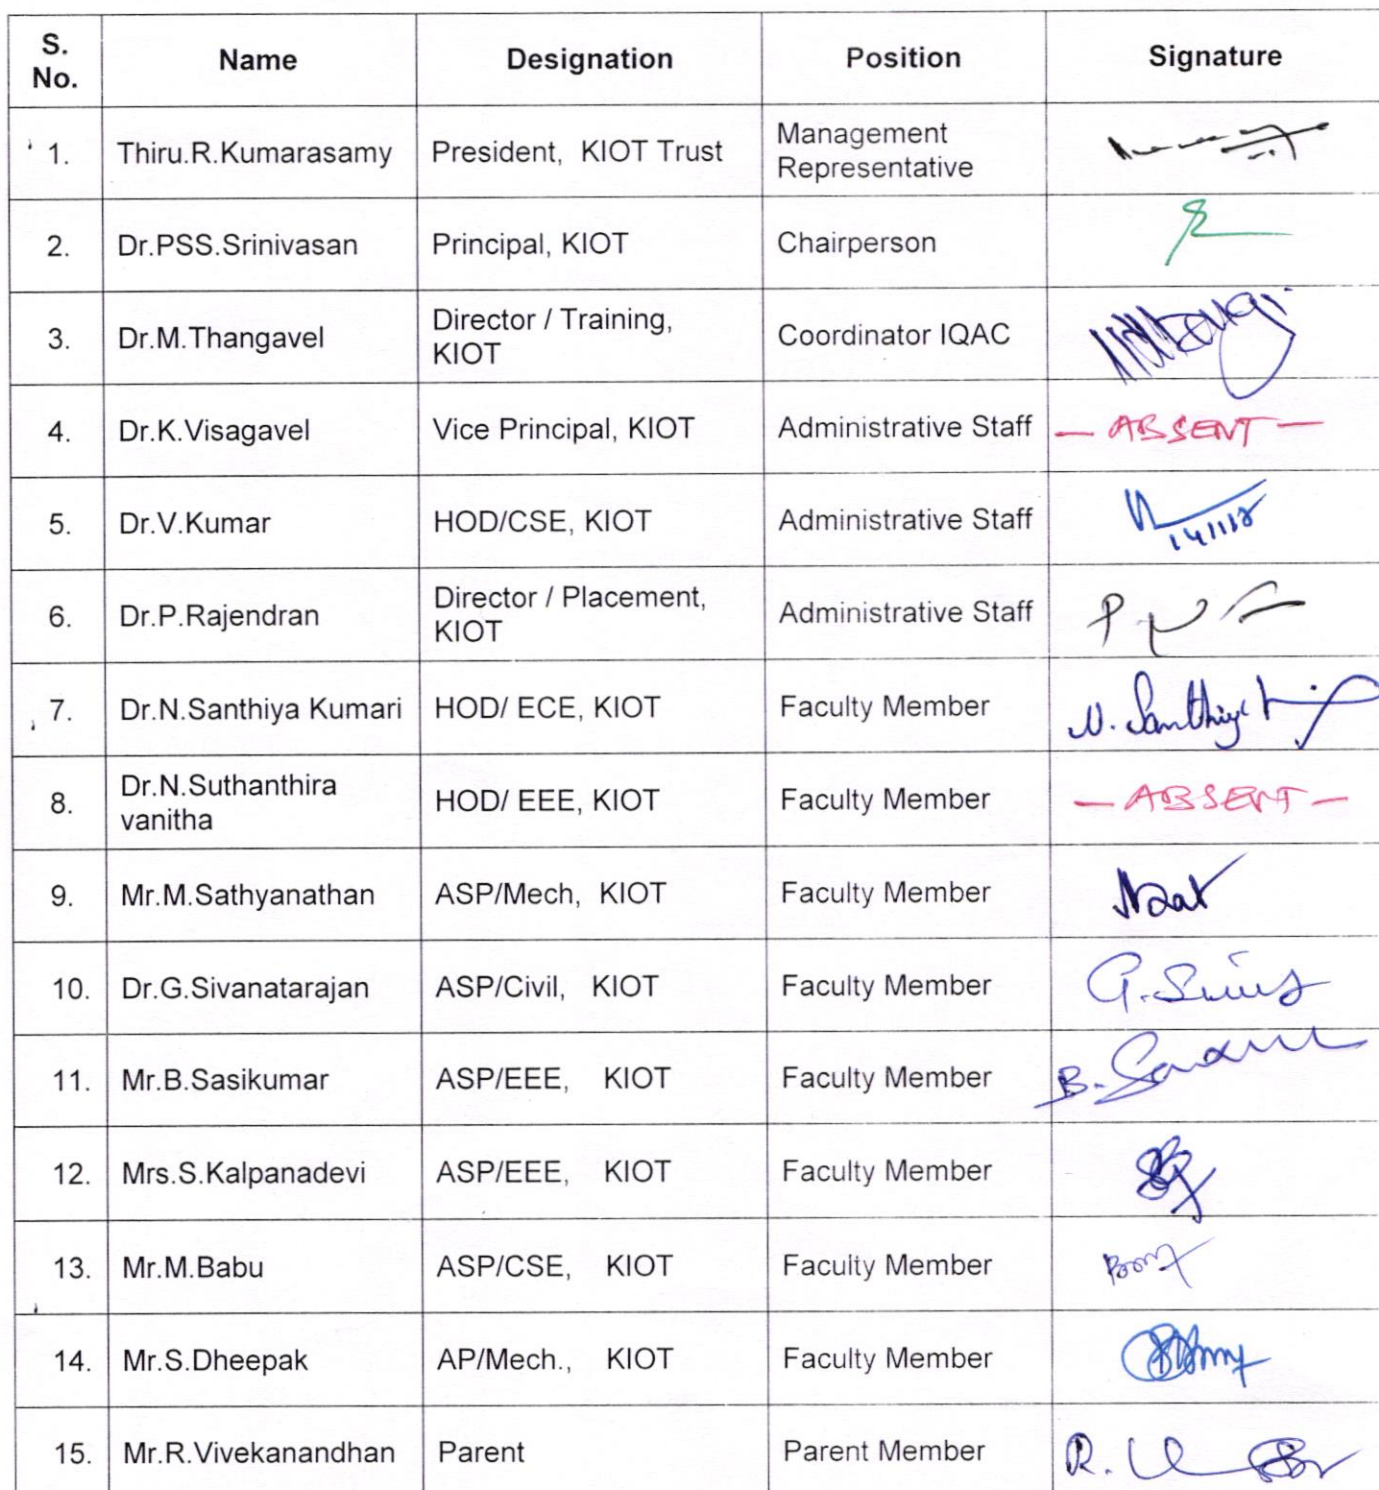 S. No. Name Designation Position Signature
1. Thiru.R.Kumarasamy President, KIOT Trust Management Representative
2. Dr.PSS.Srinivasan Principal, KIOT Chairperson
3. Dr.M.Thangavel Director / Training, KIOT Coordinator IQAC
4. Dr.K.Visagavel Vice Principal, KIOT Administrative Staff — ABSENT —
5. Dr.V.Kumar HOD/CSE, KIOT Administrative Staff
6. Dr.P.Rajendran Director / Placement, KIOT Administrative Staff
7. Dr.N.Santhiya Kumari HOD/ ECE, KIOT Faculty Member N. Santhiya
8. Dr.N.Suthanthira vanitha HOD/ EEE, KIOT Faculty Member — ABSENT —
9. Mr.M.Sathyanathan ASP/Mech, KIOT Faculty Member
10. Dr.G.Sivanatarajan ASP/Civil, KIOT Faculty Member
11. Mr.B.Sasikumar ASP/EEE, KIOT Faculty Member
12. Mrs.S.Kalpanadevi ASP/EEE, KIOT Faculty Member
13. Mr.M.Babu ASP/CSE, KIOT Faculty Member
14. Mr.S.Dheepak AP/Mech., KIOT Faculty Member
15. Mr.R.Vivekanandhan Parent Parent Member